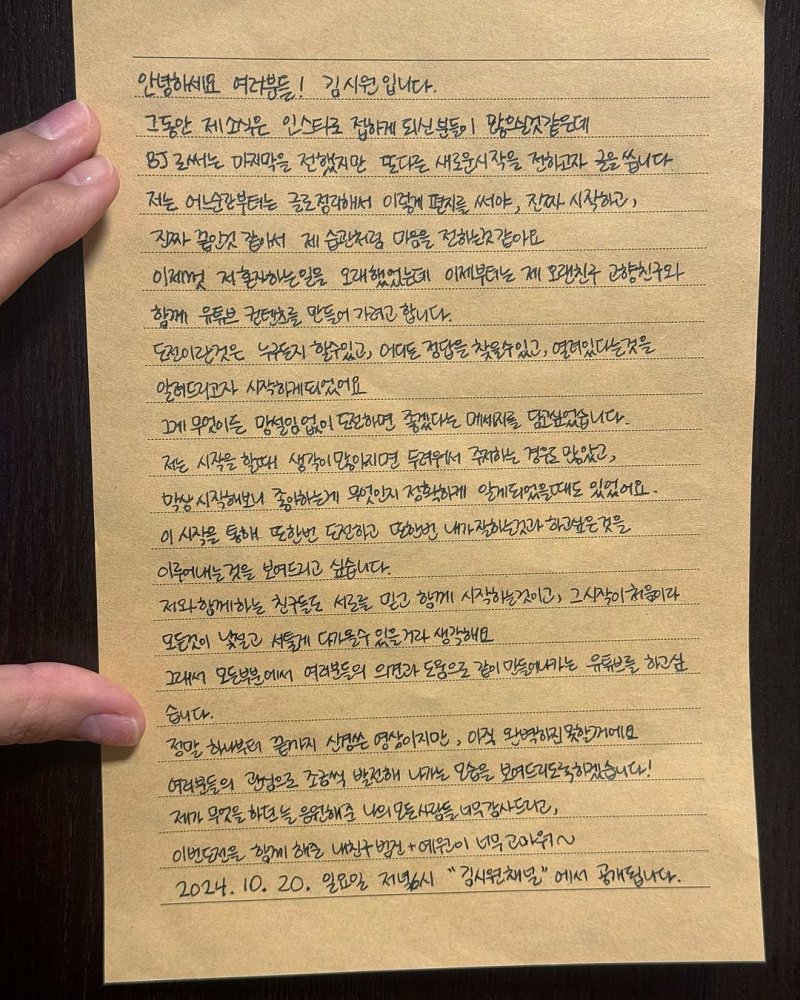 안녕하세요 여러분들! 김시원입니다.
그동안 제소식은 인스타로 접하게 되신분들이 많으실것같은데
BJ로써는 마지막을 전했지만 또다른 새로운시작을 전하고자 글을 씁니다
저는 어느순간부터는 글로정리해서 이렇게 편지를 써야, 진짜 시작하고,
진짜 끝인것 같아서 제 습관처럼 마음을 전하는것같아요
이제껏 저 혼자하는일을 오래했었는데 이제부터는 제 오랜친구 고향친구와
함께 유튜브 컨텐츠를 만들어 가려고 합니다.
도전이란것은 누구든지 할수있고, 어디든 정답을 찾을수있고, 열려있다는것을
알려드리고자 시작하게되었어요
그게 무엇이든 망설임없이 도전하면 좋겠다는 메세지를 담고싶었습니다.
저는 시작을 할때 생각이많아지면 두려워서 주저하는 경우도 많았고,
막상 시작해보니 좋아하는게 무엇인지 정확하게 알게되었을때도 있었어요.
이 시작을 통해 또한번 도전하고 또한번 내가잘하는것과 하고싶은것을
이루어내는것을 보여드리고 싶습니다.
저와함께하는 친구들도 서로를 믿고 함께 시작하는것이고, 그시작이 처음이라
모든것이 낯설고 서툴게 다가올수 있을거라 생각해요
그래서 모든부분에서 여러분들의 의견과 도움으로 같이 만들어나가는 유튜브를 하고싶
습니다.
정말 하나부터 끝까지 신경쓴 영상이지만, 아직 완벽하진못할꺼에요
여러분들의 관심으로 조금씩 발전해 나가는 모습을 보여드리도록하겠습니다!
제가 무엇을 하던 늘 응원해준 나의모든사람들 너무감사드리고,
이번도전을 함께 해준 내친구범진+예원이 너무고마워~
2024.10.20. 일요일 저녁6시 "김시원채널"에서 공개됩니다.